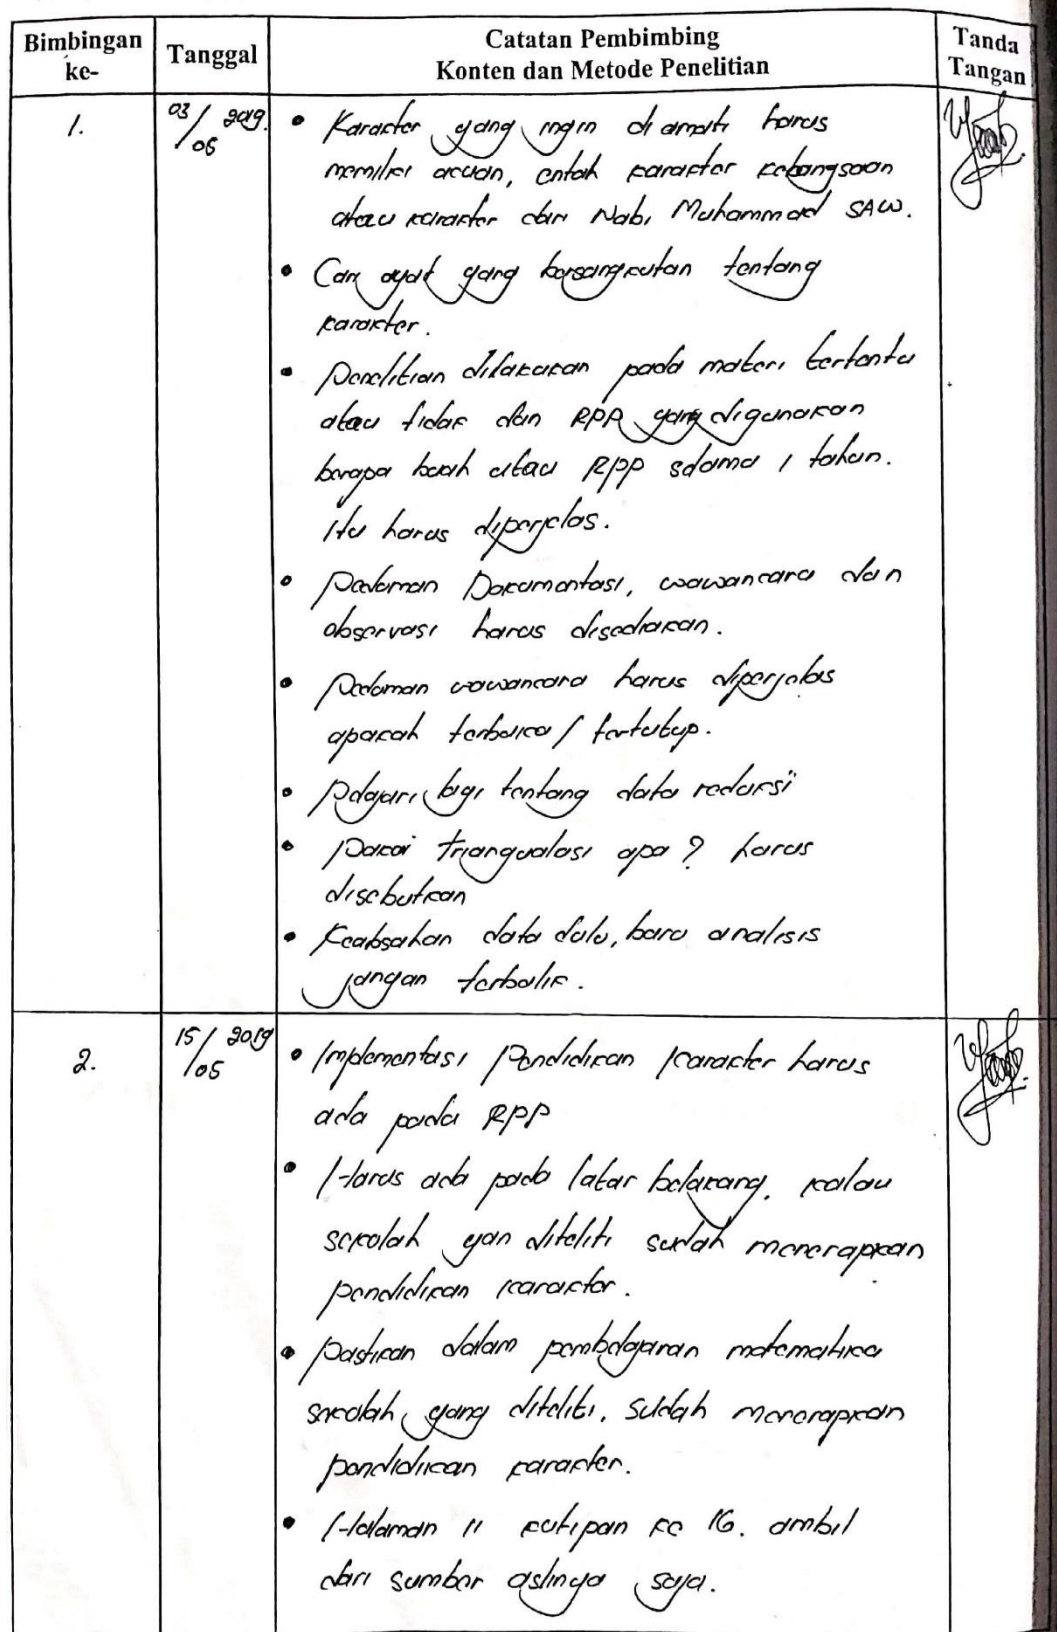 Bimbingan ke-
Tanggal
Catatan Pembimbing
Konten dan Metode Penelitian
Tanda Tangan
1.
03/06 2019
• Karakter yang ingin di amati harus
memiliki acuan, entah karakter kebangsaan
atau karakter dari Nabi Muhammad SAW.
• Cari ayat yang bersangkutan tentang
karakter.
• Penelitian dilakukan pada materi tertentu
atau tidak dan RPP yang digunakan
berapa buah atau RPP selama 1 tahun.
Itu harus diperjelas.
• Pedoman Dokumentasi, wawancara dan
observasi harus disediakan.
• Pedoman wawancara harus diperjelas
apakah terbuka / tertutup.
• Pelajari lagi tentang data reduksi
• Pakai triangualasi apa? harus
disebutkan
• Keabsahan data dulu, baru analisis
jangan terbalik.
2.
15/05 2019
• Implementasi Pendidikan karakter harus
ada pada RPP
• Harus ada pada latar belakang, kalau
sekolah yan diteliti sudah menerapkan
pendidikan karakter.
• Pastikan dalam pembelajaran matematika
sekolah yang diteliti, sudah menerapkan
pendidikan karakter.
• Halaman 11 kutipan ke 16. ambil
dari sumber aslinya saja.